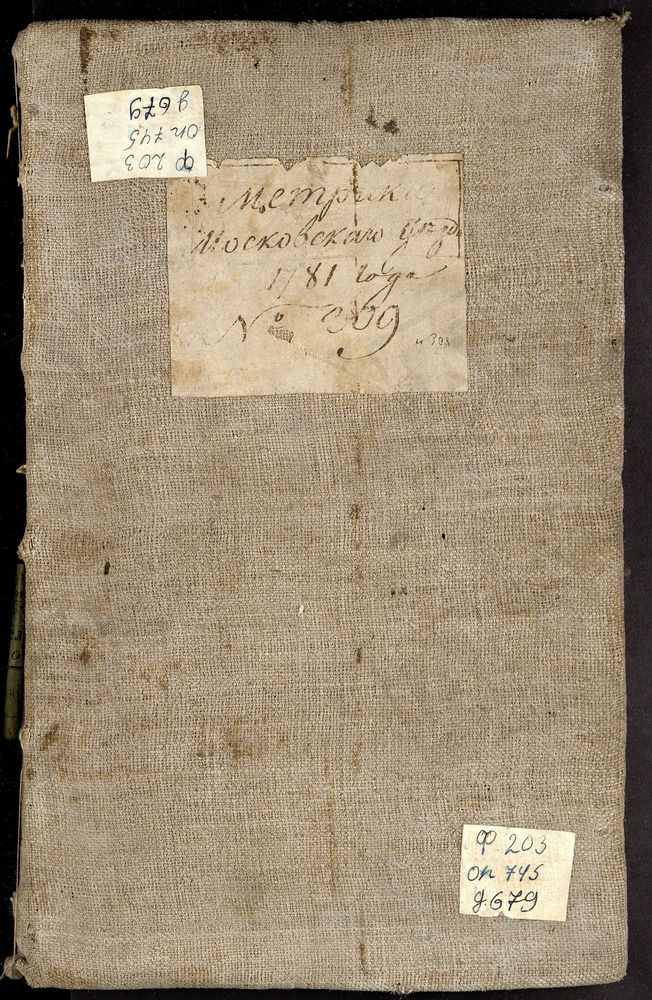 ф 203
оп 745
д 679
Метрики
Московскаго уезд.
1781 года
№ 309
Ф. 203
оп 745
д. 679